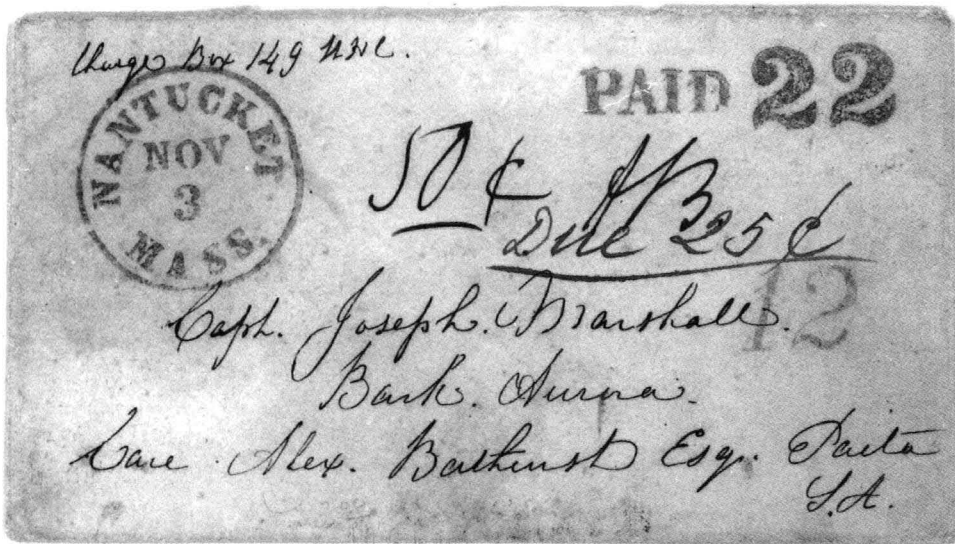 Charge Box 149
PAID 22
NANTUCKET
NOV
3
MASS.
50 ¢
Due 25 ¢
12
Capt. Joseph Marshall.
Bark. Aurora.
Care Alex. Bathurst Esq. Paita
S.A.